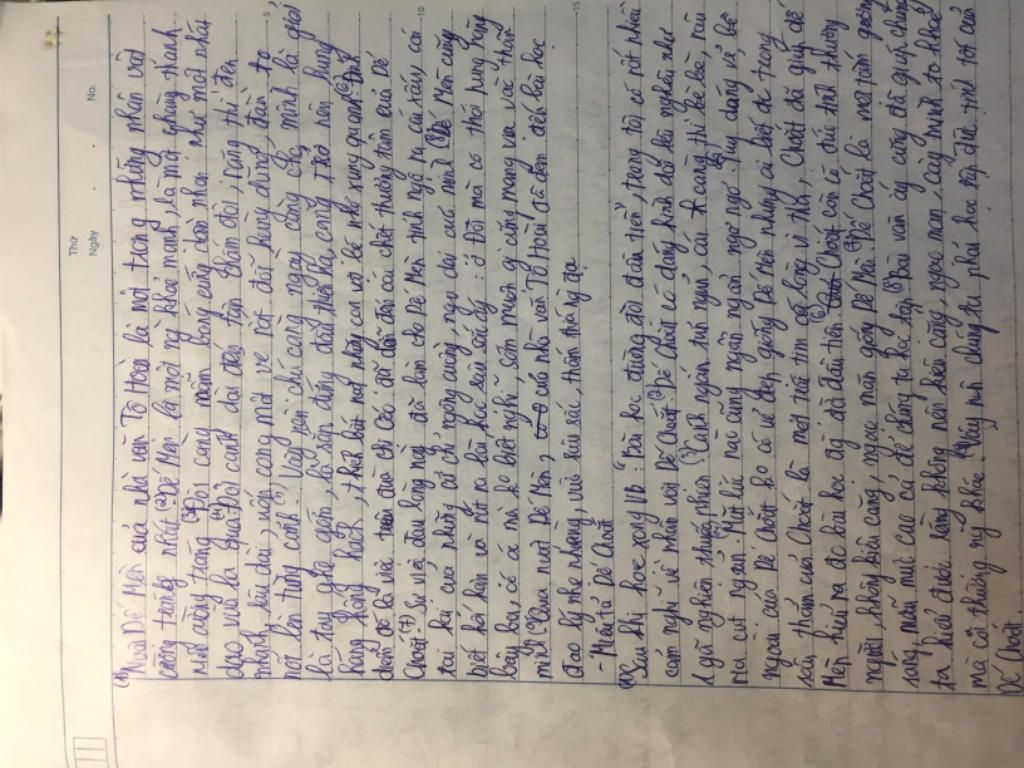 Thứ
Ngày
No.
(1) Nhân Dế Mèn của nhà văn Tô Hoài là một trong những nhân vật
cường tráng nhất. (2) Dế Mèn là một ng khoẻ mạnh, là một chàng thanh
niên cường tráng. (3) Đôi càng mẫm bóng cứng nhọn như một nhát
dao vừa lia qua. (4) Đôi cánh dài tận chấm đôi, răng thì đen
nhánh, râu dài, uốn cong một vẻ rất đỗi hùng dũng, đầu to
nổi lên từng tảng. (5) Vậy nên chú càng ngày càng cho mình là giỏi
là tay ghê gớm, là sắp đứng đầu thiên hạ, càng trở nên hung
hăng, thích bắt nạt những con vật bé nhỏ xung quanh. (6) Đỉnh
điểm đó là việc trêu chị Cốc đã dẫn đến cái chết thương tâm của Dế
Choắt. (7) Sự việc đau lòng này đã làm cho Dế Mèn tỉnh ngộ ra cái xấu, cái
tai hại của những cử chỉ ngông cuồng, ngu dại của mình. (8) Dế Mèn cũng
biết hối hận và rút ra bài học sâu sắc ấy: ở đời mà có thói hung hăng
bậy bạ, có óc mà ko biết nghĩ sớm muộn gì cũng mang vạ vào thân
mình. (9) Qua n.vật Dế Mèn, của nhà văn Tô Hoài đã đem đến bài học
đạo lý nhẹ nhàng, vừa sâu sắc, thấm thía
- Miêu tả Dế Choắt
(1) Sau khi học xong Vb "Bài học đường đời đầu tiên", trong tôi có rất nhiều
cảm nghĩ về nhân vật Dế Choắt. (2) Dế Choắt có dáng hình dài lêu nghêu như
1 gã nghiện thuốc phiện. (3) Cánh ngắn tun ngủn, càng thì bè bè, râu
ria cụt ngủn. (4) Mặt lúc nào cũng ngẩn ngẩn ngơ ngơ. Tuy dáng vẻ, bề
ngoài của Dế Choắt ko có vẻ đẹp giống Dế Mèn nhưng ai biết đc trong
sâu thẳm của Choắt là một trái tim có lòng vị tha, Choắt đã giúp Dế
Mèn hiểu ra đc bài học đường đời đầu tiên. Choắt còn có đức tính thương
người, không kiêu căng, ngạo mạn giống Dế Mèn. Dế Choắt là một tấm gương
sáng, mẫu mực cao cả để chúng ta học tập. (8) Bài văn ấy cũng đã giúp chúng
ta hiểu được rằng không nên kiêu căng, ngạo mạn, cậy mình to khoẻ
mà coi thường ng khác. (9) Vậy nên chúng ta phải học tập đức tính tốt của
Dế Choắt.